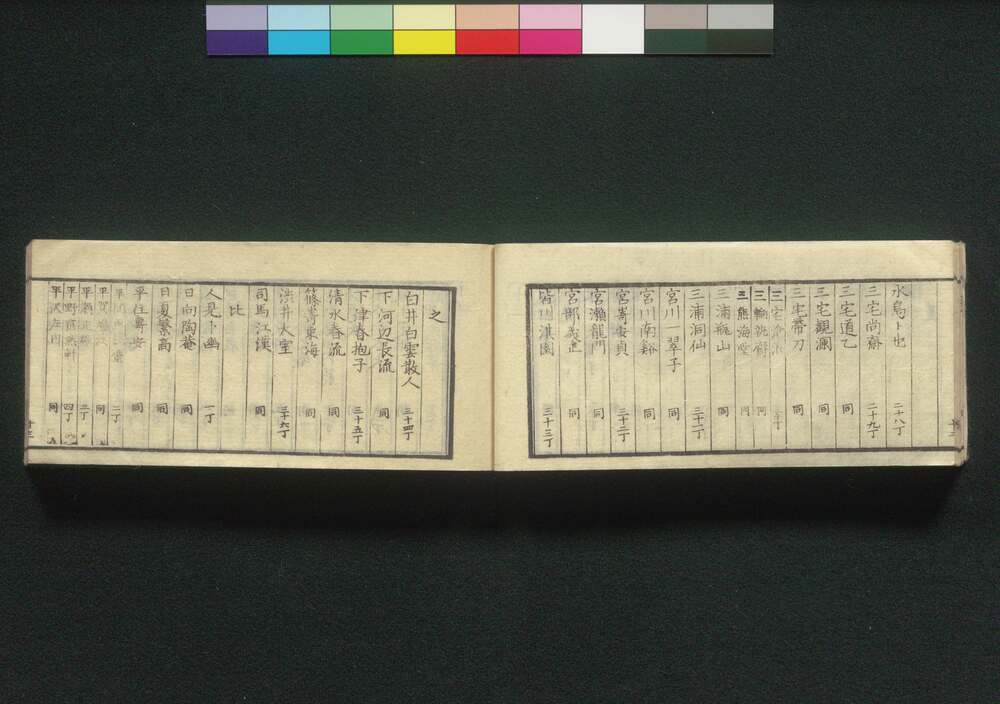 水鳥卜也 二十八丁
三宅尚齋 二十九丁
三宅道乙 同
三宅觀瀾 同
三宅帶刀 同
三宅
三輪執齋 同
三熊海堂 同
三浦瓶山 同
三浦洞仙 三十一丁
宮川一翠子 同
宮川南谿 同
宮嵜安貞 三十二丁
宮瀬龍門 同
宮部義正 同
皆川淇園 三十三丁
之
白井白雲散人 三十四丁
下河辺長流 同
下津春抱子 三十五丁
清水春流 同
篠嵜東海 同
洪井太室 三十六丁
司馬江漢 同
比
人見卜幽 一丁
日向陶菴 同
日夏繁高 同
平住専安 同
平 二丁
平賀 同
平瀬 三丁
平野 四丁
平沢左内 同